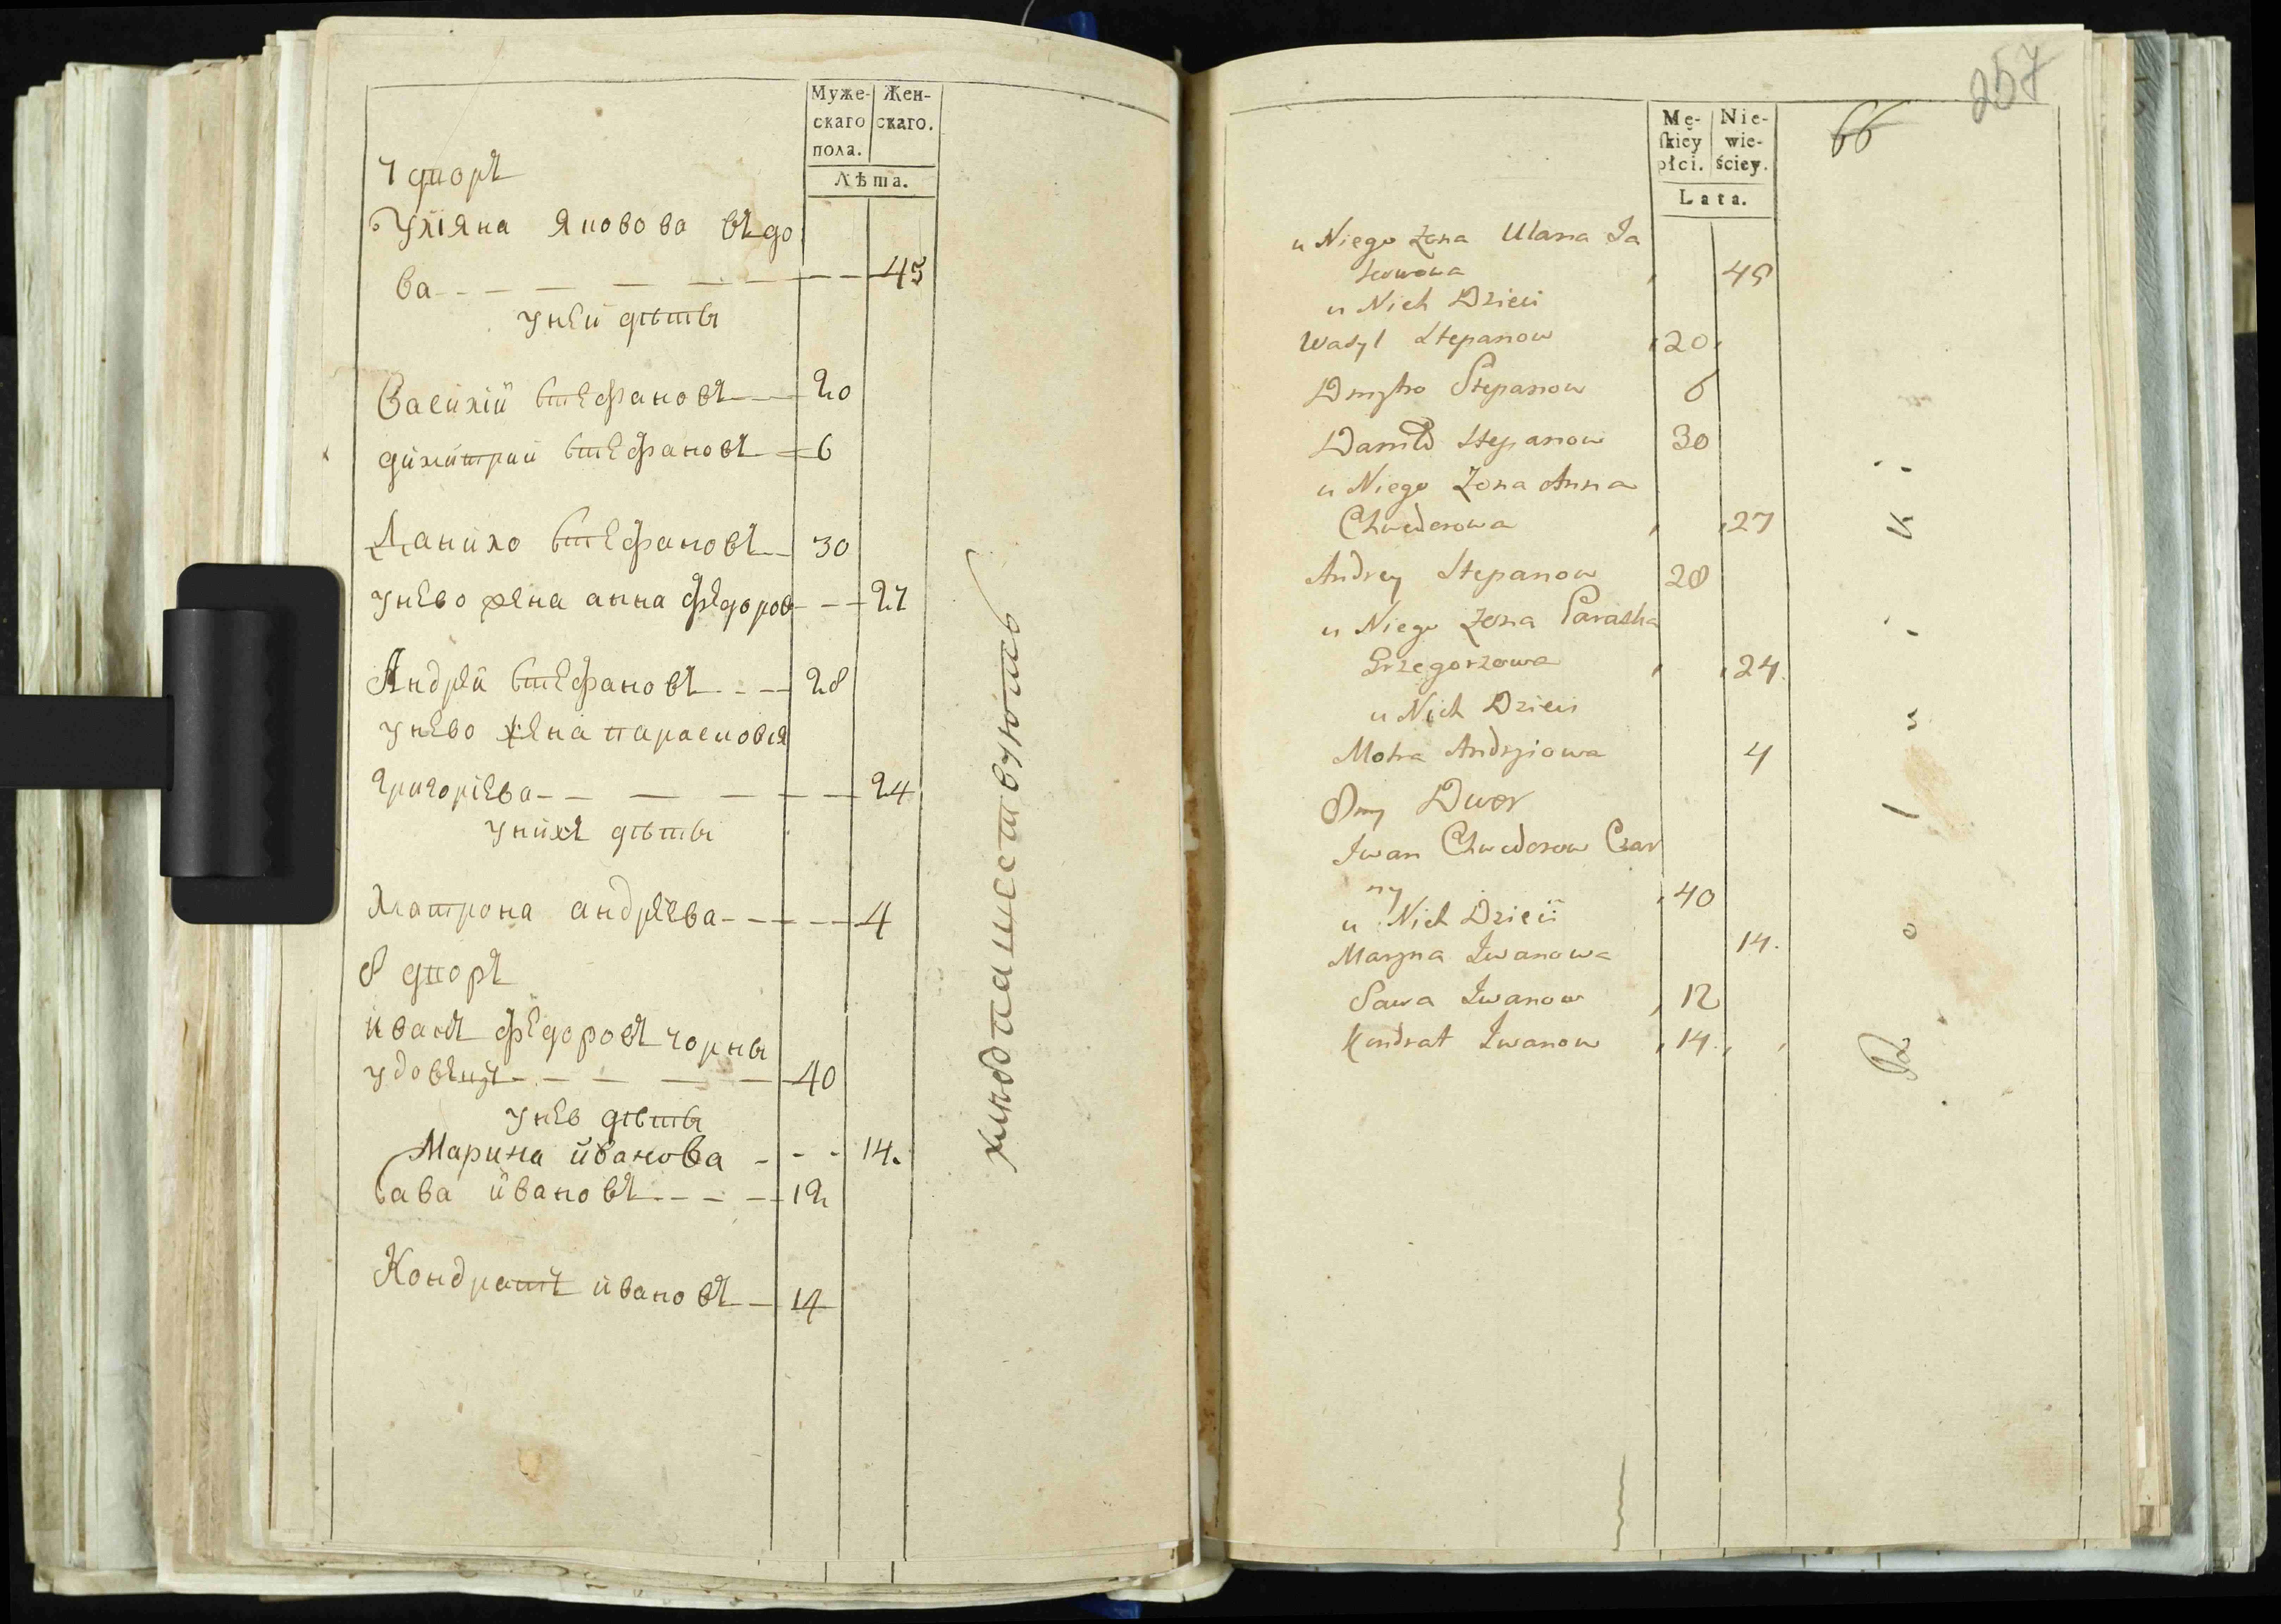 Муже-
скаго
пола.
Жен-
скаго.
Лѣта.
7 дворъ
Улїяна Яковова въдо
ва - - - - - - 45
у ней дѣты
Василїй Стефановъ - 20
димитрий Стефановъ - 6
Данило Стефановъ - 30
у нево жена анна федоров - - 27
Андрѣй Стефановъ - - - 28
у нево жена парасковїя
григорїева - - - - - 24
у нихъ дѣты
Матрона андрѣева - - - - 4
8 дворъ
иванъ федоровъ чорны
удовецъ - - - - - 40
у нев дѣты
Марина иванова - - - 14.
Сава ивановъ - - - - 12
Кондратъ ивановъ - 14
хлѣбопашествуютъ
257
66
Mę-
skiey
płci.
Nie-
wie-
ściey.
Lata.
u Niego żona Ulana Ja
kowowa 45
u Nich Dzieci
Wasyl Stepanow 20
Dmytro Stepanow 6
Daniło Stepanow 30
u Niego Żona Anna
Chwedorowa 27
Andrey Stepanow 28
u Niego żona Paraska
Grzegorzowa 24
u Nich Dzieci
Motra Andryiowa 4
8my Dwor
Iwan Chwedorow Czar
ny 40
u Nich Dzieci
Maryna Iwanowa 14.
Sawa Iwanow 12
Kondrat Iwanow 14